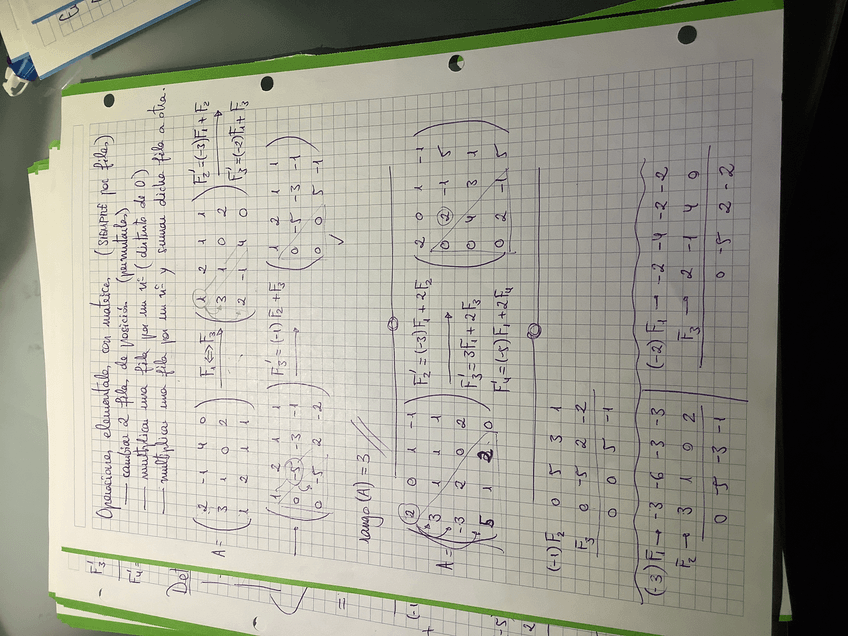 Operaciones elementales con matrices (SIEMPRE por filas)
— cambiar 2 filas de posición (permutarlas)
— multiplicar una fila por un nº (distinto de 0)
— multiplicar una fila por un nº y sumar dicha fila a otra.
A = ( 2 -1 4 0 ; 3 1 0 2 ; 1 2 1 1 ) F₁ ⟺ F₃ → ( 1 2 1 1 ; 3 1 0 2 ; 2 -1 4 0 ) F₂' = (-3)F₁ + F₂ → F₃' = (-2)F₁ + F₃
→ ( 1 2 1 1 ; 0 -5 -3 -1 ; 0 -5 2 -2 ) F₃' = (-1)F₂ + F₃ → ( 1 2 1 1 ; 0 -5 -3 -1 ; 0 0 5 -1 ) ✓
rango (A) = 3
A = ( 2 0 1 -1 ; 3 1 1 1 ; -3 2 0 2 ; 5 1 2 0 ) F₂' = (-3)F₁ + 2F₂ → F₃' = 3F₁ + 2F₃ F₄' = (-5)F₁ + 2F₄ ( 2 0 1 -1 ; 0 2 -1 5 ; 0 4 3 1 ; 0 2 -1 5 )
(-1)F₂ 0 5 3 1
F₃ 0 -5 2 -2
0 0 5 -1
(-3)F₁ → -3 -6 -3 -3
F₂ → 3 1 0 2
0 -5 -3 -1
(-2)F₁ → -2 -4 -2 -2
F₃ → 2 -1 4 0
0 -5 2 -2
F₃'
F₄'
Det